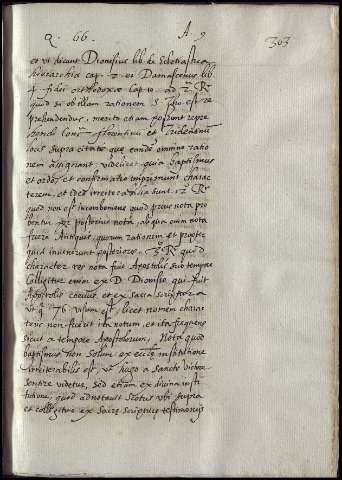 Q. 66. A. 9 303
et vt dicunt Dionisius lib de Eclesiastica
hierarchia cap. 2 et Damascenus lib
4 fidei orthodoxae cap 10 ad 2 R.r
quod si ob illam rationem S. Tho est re
prehendendus, merito etiam possunt repre
hendi Conc. florentinum et Tridentinum
locis supra citatis quae eandem omnino ratio
nem assignant videlicet quia baptismus
et ordo, et confirmatio imprimunt charac
terem, et ideo initerabilia sunt. 2 R.r
quod non est inconveniens quod prius nota pro
bentur per posterius nota, ab qua enim nota
fuera Antiquis, quorum rationem et propte
quid invenerunt posteriores. 3 R.r quod
character res nota fuit Apostolis suo tempore
Colligitur enim ex D. Dionisio, qui fuit
Apostolis coaevus, et ex sacra scriptura
vt q. 76 visum est, licet nomen charac
teris non fuerit ita notum, et ita frequens
sicut a tempore Apostolorum, Nota quod
baptismus non solum ex ecclae institutione
initerabilis est, vt hugo a Sancto Victore
sentire videtur, sed etiam ex divina insti
tutione, quod adnotavit Scotus vbi supra
et colligitur ex sacris scripturis testimonijs